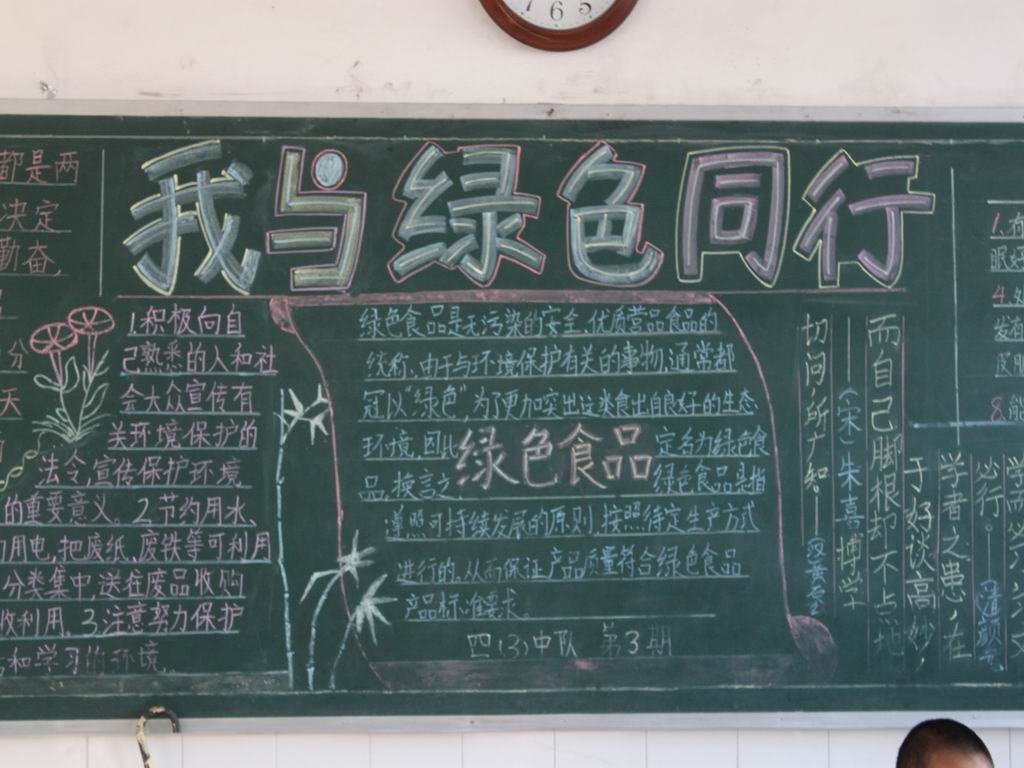 7 6 5
都是两
决定
勤奋,
分
天
我与绿色同行
1.积极向自
己熟悉的人和社
会大众宣传有
关环境保护的
法令,宣传保护环境
的重要意义。2.节约用水、
用电,把废纸、废铁等可利用
分类集中,送在废品收购
收利用。3.注意努力保护
和学习的环境。
绿色食品是无污染的安全、优质营品食品的
统称、由于与环境保护有关的事物,通常都
冠以“绿色”,为了更加突出这类食出自良好的生态
环境,因此 定名为绿色食
绿色食品
品,换言之, 绿色食品是指
遵照可持续发展的原则,按照待定生产方式
进行的。从而保证产品质量符合绿色食品
产品标准要求。
四(3)中队 第3期
1.有
眼好
4.
发有
8.能
学而必习,习又
必行。
学者之患,在
于好谈高妙,
而自己脚根却不点地
——(宋)朱熹 博学
切问所广知——